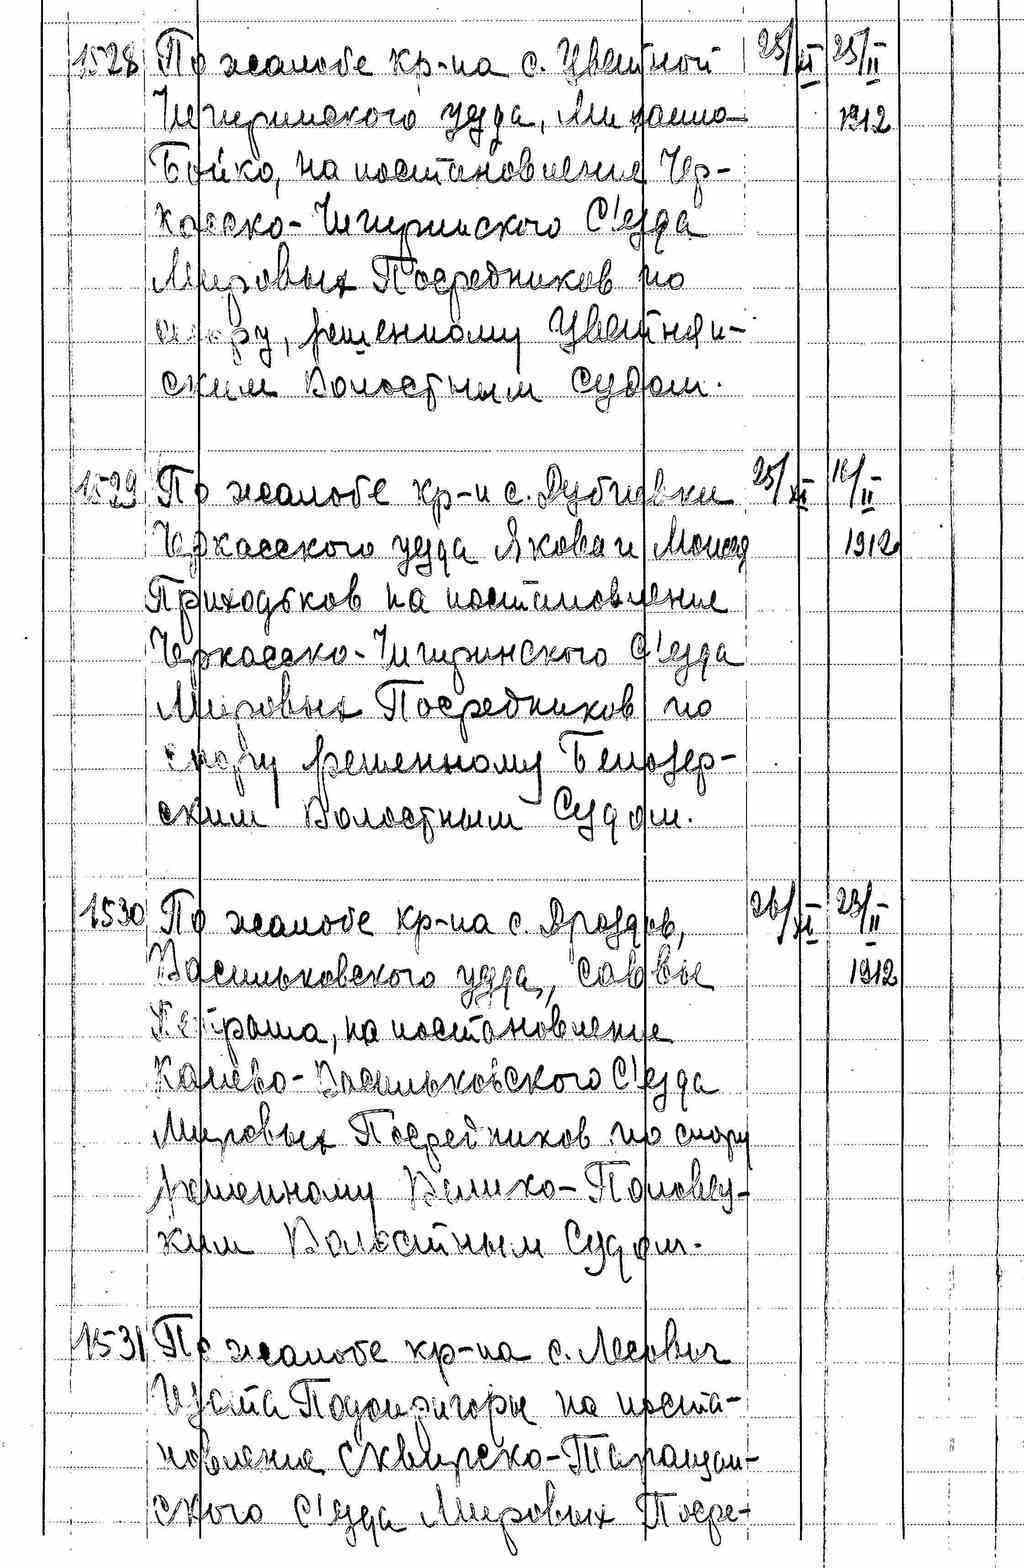 1528 По жалобе кр-на с. Цветной 25/XI 25/II
Чигиринского уезда, Михаила 1912
Бойко, на постановление Чер-
касско-Чигиринского С'езда
Мировых Посредников по
спору, решенному Цветнян-
ским Волостным Судом.
1529 По жалобе кр-н с. Дубиевки 25/XI /II
Черкасского уезда Якова и Моисея 1912
Приходьков на постановление
Черкасско-Чигиринского С'езда
Мировых Посредников по
спору решенному Белозер-
ским Волостным Судом.
1530 По жалобе кр-на с. Дроздов, 26/XI 23/II
Васильковского уезда, Саввы 1912
на постановление
Киево-Васильковского С'езда
Мировых Посредников по спору
решенному Велико-Половец-
ким Волостным Судом.
1531 По жалобе кр-на с. Лесович
Игната Подопригоры на поста-
новление Сквирско-Таращан-
ского С'езда Мировых Посре-